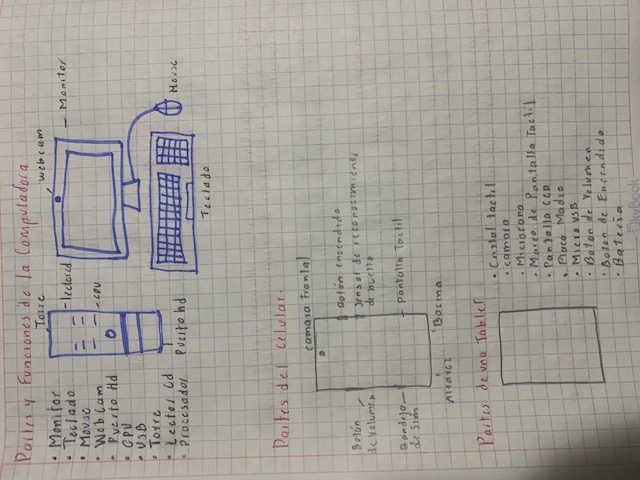 Partes y Funciones de la Computadora
Torre
webcam
• Monitor
• Teclado
• Mouse
• Web Cam
• Puerto Hd
• CPU
• USB
• Torre
• Lector Cd
• Procesador
lectorcd
CPU
Monitor
Puerto hd
Mouse
Teclado
Partes del Celular.
camara Frontal
Botón encendido
Sensor de reconocimiento
de huella
Botón
de Volumen
Bandeja
de Sim
Pantalla Tactil
Altavoz
Bocina
Partes de una Tablet
• Cristal tactil
• camara
• Microfono
• Marco de Pantalla Tactil
• Pantalla
• Placa Madre
• Micro USB
• Boton de Volumen
• Boton de Encendido
• Bateria
SkyBook